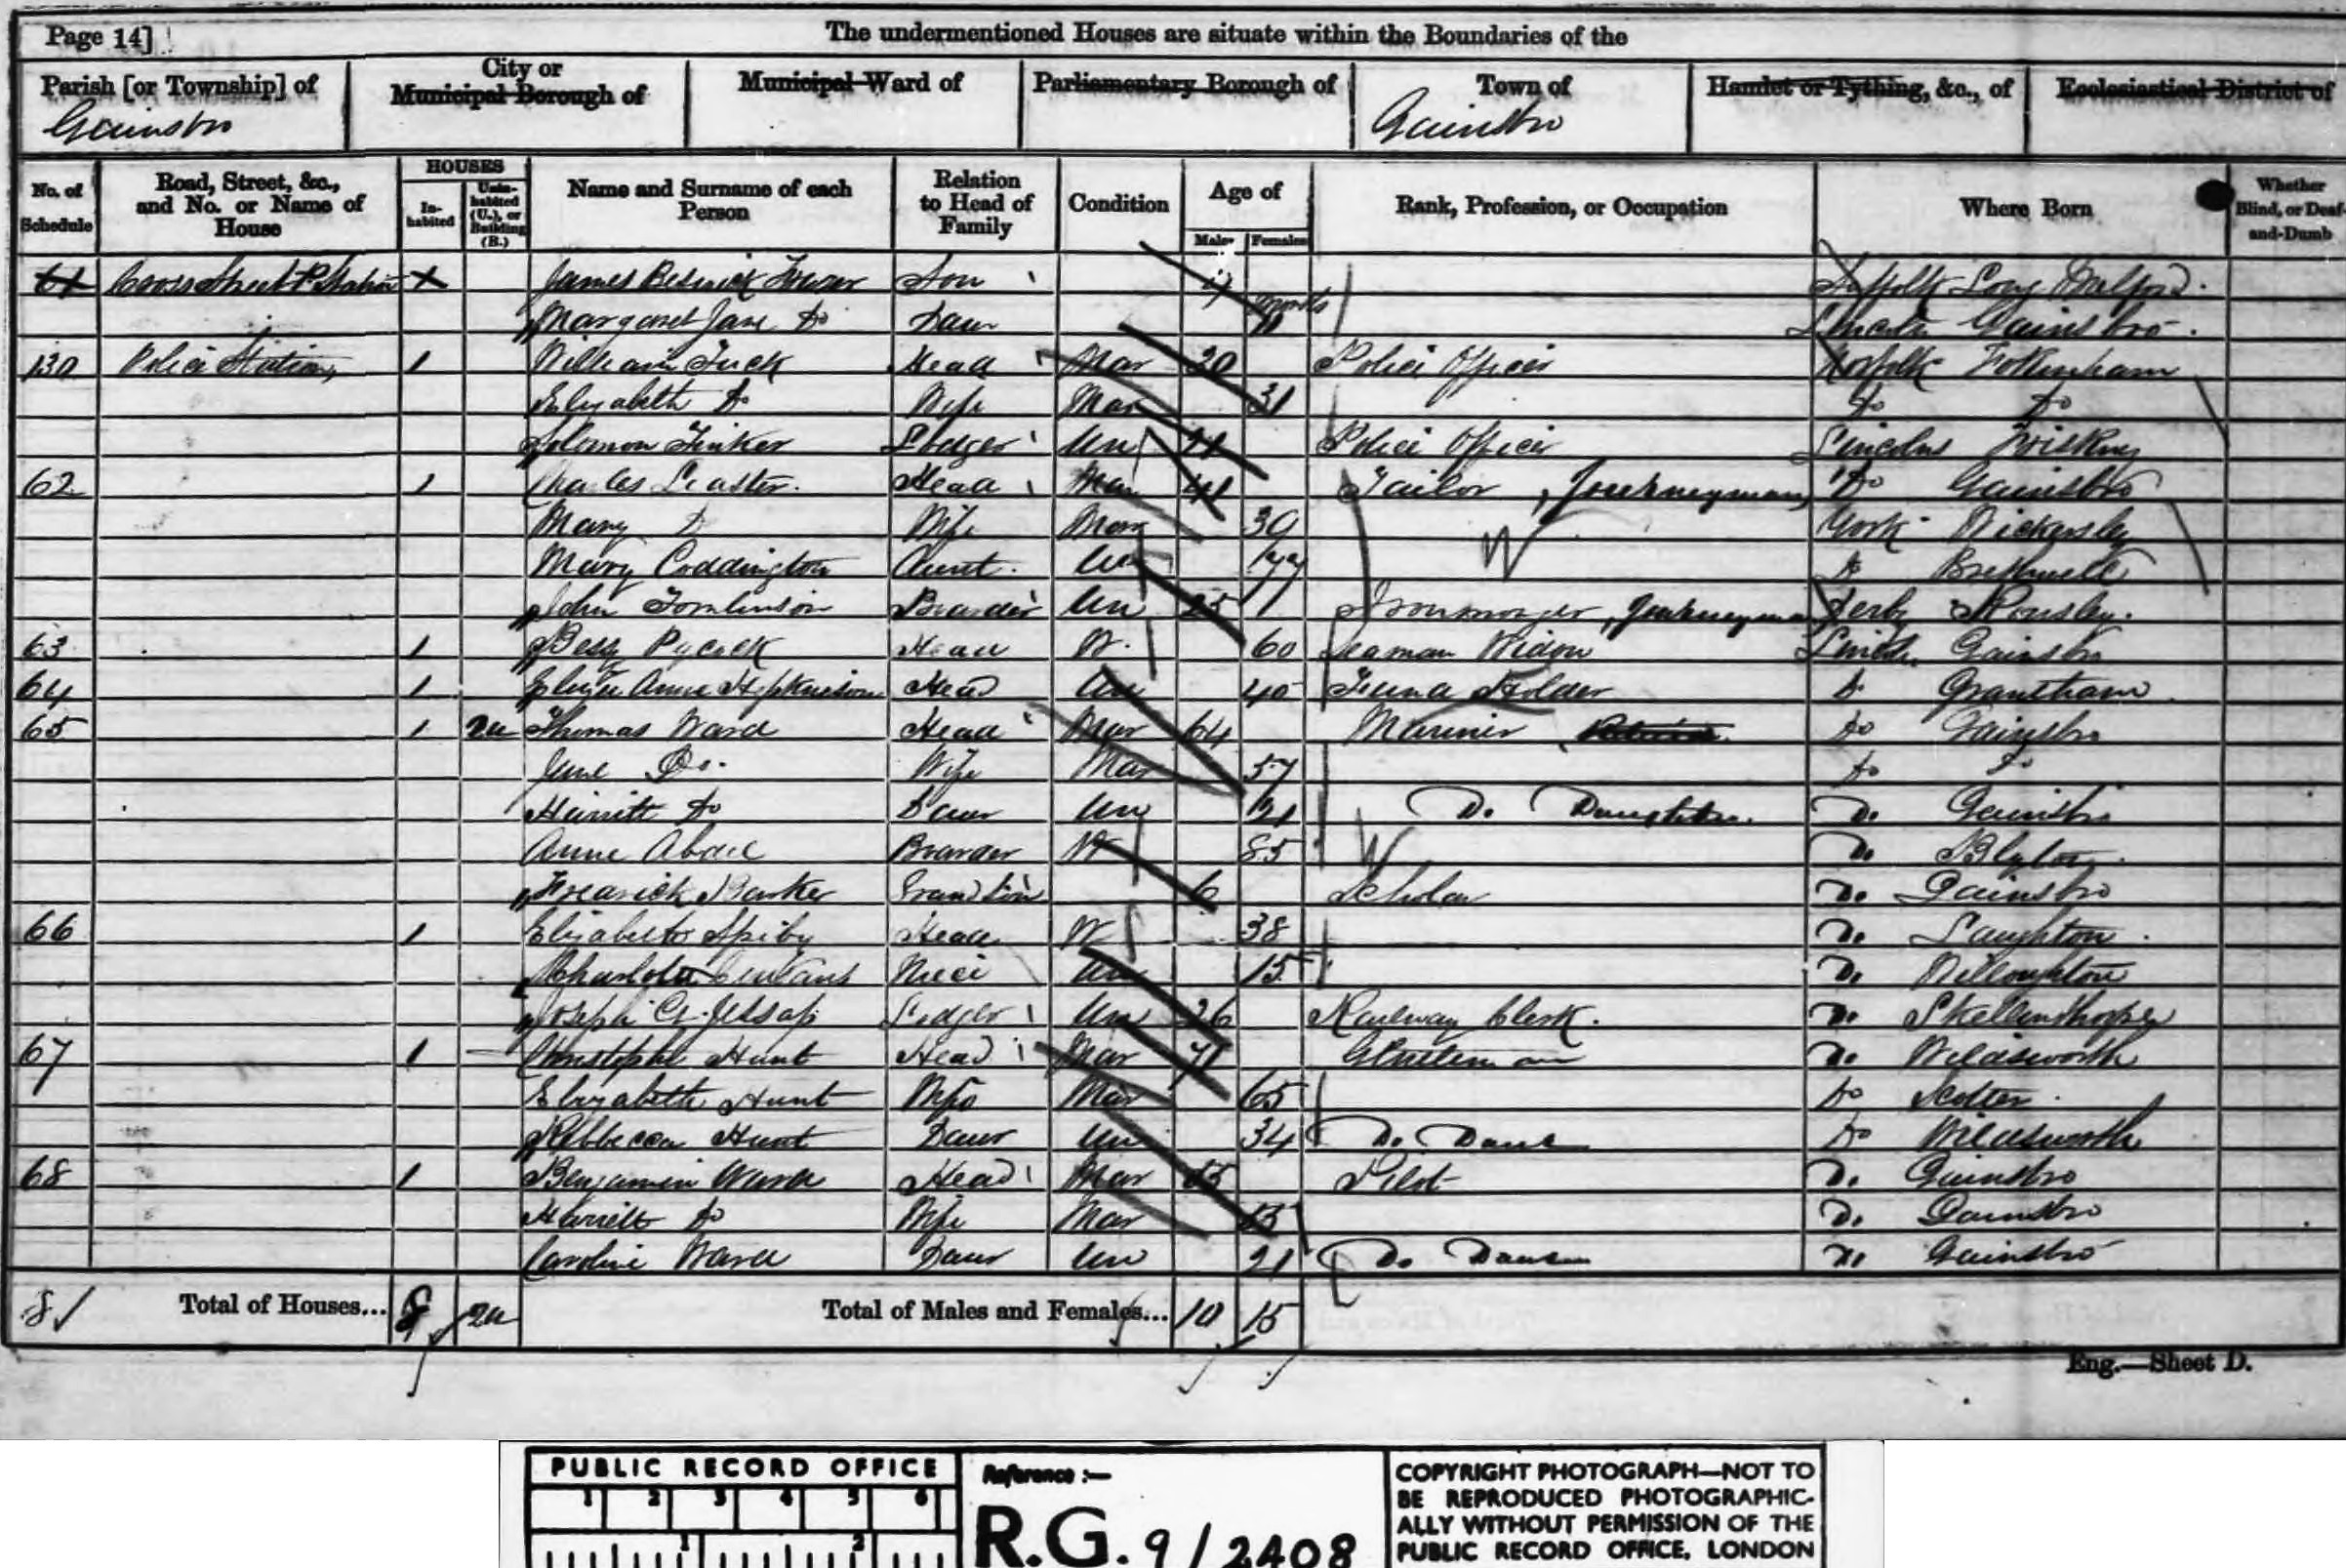 Page 14] The undermentioned Houses are situate within the Boundaries of the
Parish [or Township] of City or Municipal Borough of Municipal Ward of Parliamentary Borough of Town of Hamlet or Tything, &c., of Ecclesiastical District of
Gainsbro Gainsbro
No. of Schedule Road, Street, &c., and No. or Name of House HOUSES Inhabited Uninhabited (U.), or Building (B.) Name and Surname of each Person Relation to Head of Family Condition Age of Males Females Rank, Profession, or Occupation Where Born Whether Blind, or Deaf-and-Dumb
61 Cross Street P Station X James Beswick Son 4 Suffolk Long Melford
Margaret Jane Do Daur Lincoln Gainsbro
130 Police Station 1 William Tuck Head Mar 30 Police Officer Norfolk Fakenham
Elizabeth Do Wife Mar 31 Do Do
Solomon Tinker Lodger Un 21 Police Officer Lincoln Friskney
62 1 Charles Head Mar 41 Tailor, Journeyman Do Gainsbro
Mary Do Wife Mar 39 W York Wickersley
Mary Coddington Aunt Un 77 Do
John Tomlinson Boarder Un 25 Ironmonger, Journeyman Derby
63 1 Bessy Pycock Head W. 60 Seaman Widow Lincoln Gainsbro
64 1 Eliza Anne Hopkinson Head Un 40 Fund Holder Do Grantham
65 1 2u Thomas Ward Head Mar 64 Mariner Do Gainsbro
Jane Do. Wife Mar 57 Do Do
Harriett Do Daur Un 21 Do Daughter Do Gainsbro
Anne Boarder W 85 W Do Blyton
Fredrick Barker Grandson 6 Scholar Do Gainsbro
66 1 Elizabeth Spiby Head W 38 Do Laughton
Charlotte Niece Un 15 Do Willoughton
Joseph G. Jessop Lodger Un 26 Railway Clerk. Do Skellingthorpe
67 1 Christopher Hunt Head Mar 71 Gentleman Do Wildsworth
Elizabeth Hunt Wife Mar 65 Do Scotter
Rebbecca Hunt Daur Un 34 Do Daur Do Wildsworth
68 1 Benjamin Ward Head Mar 55 Pilot Do Gainsbro
Harriett Do Wife Mar 55 Do Gainsbro
Caroline Ward Daur Un 21 Do Daur Do Gainsbro
8 Total of Houses... 8 2u Total of Males and Females... 10 15
Eng.—Sheet D.
PUBLIC RECORD OFFICE
1 2 3 4 5 6
1 2
Reference :—
R.G. 9/2408
COPYRIGHT PHOTOGRAPH—NOT TO
BE REPRODUCED PHOTOGRAPHIC-
ALLY WITHOUT PERMISSION OF THE
PUBLIC RECORD OFFICE, LONDON